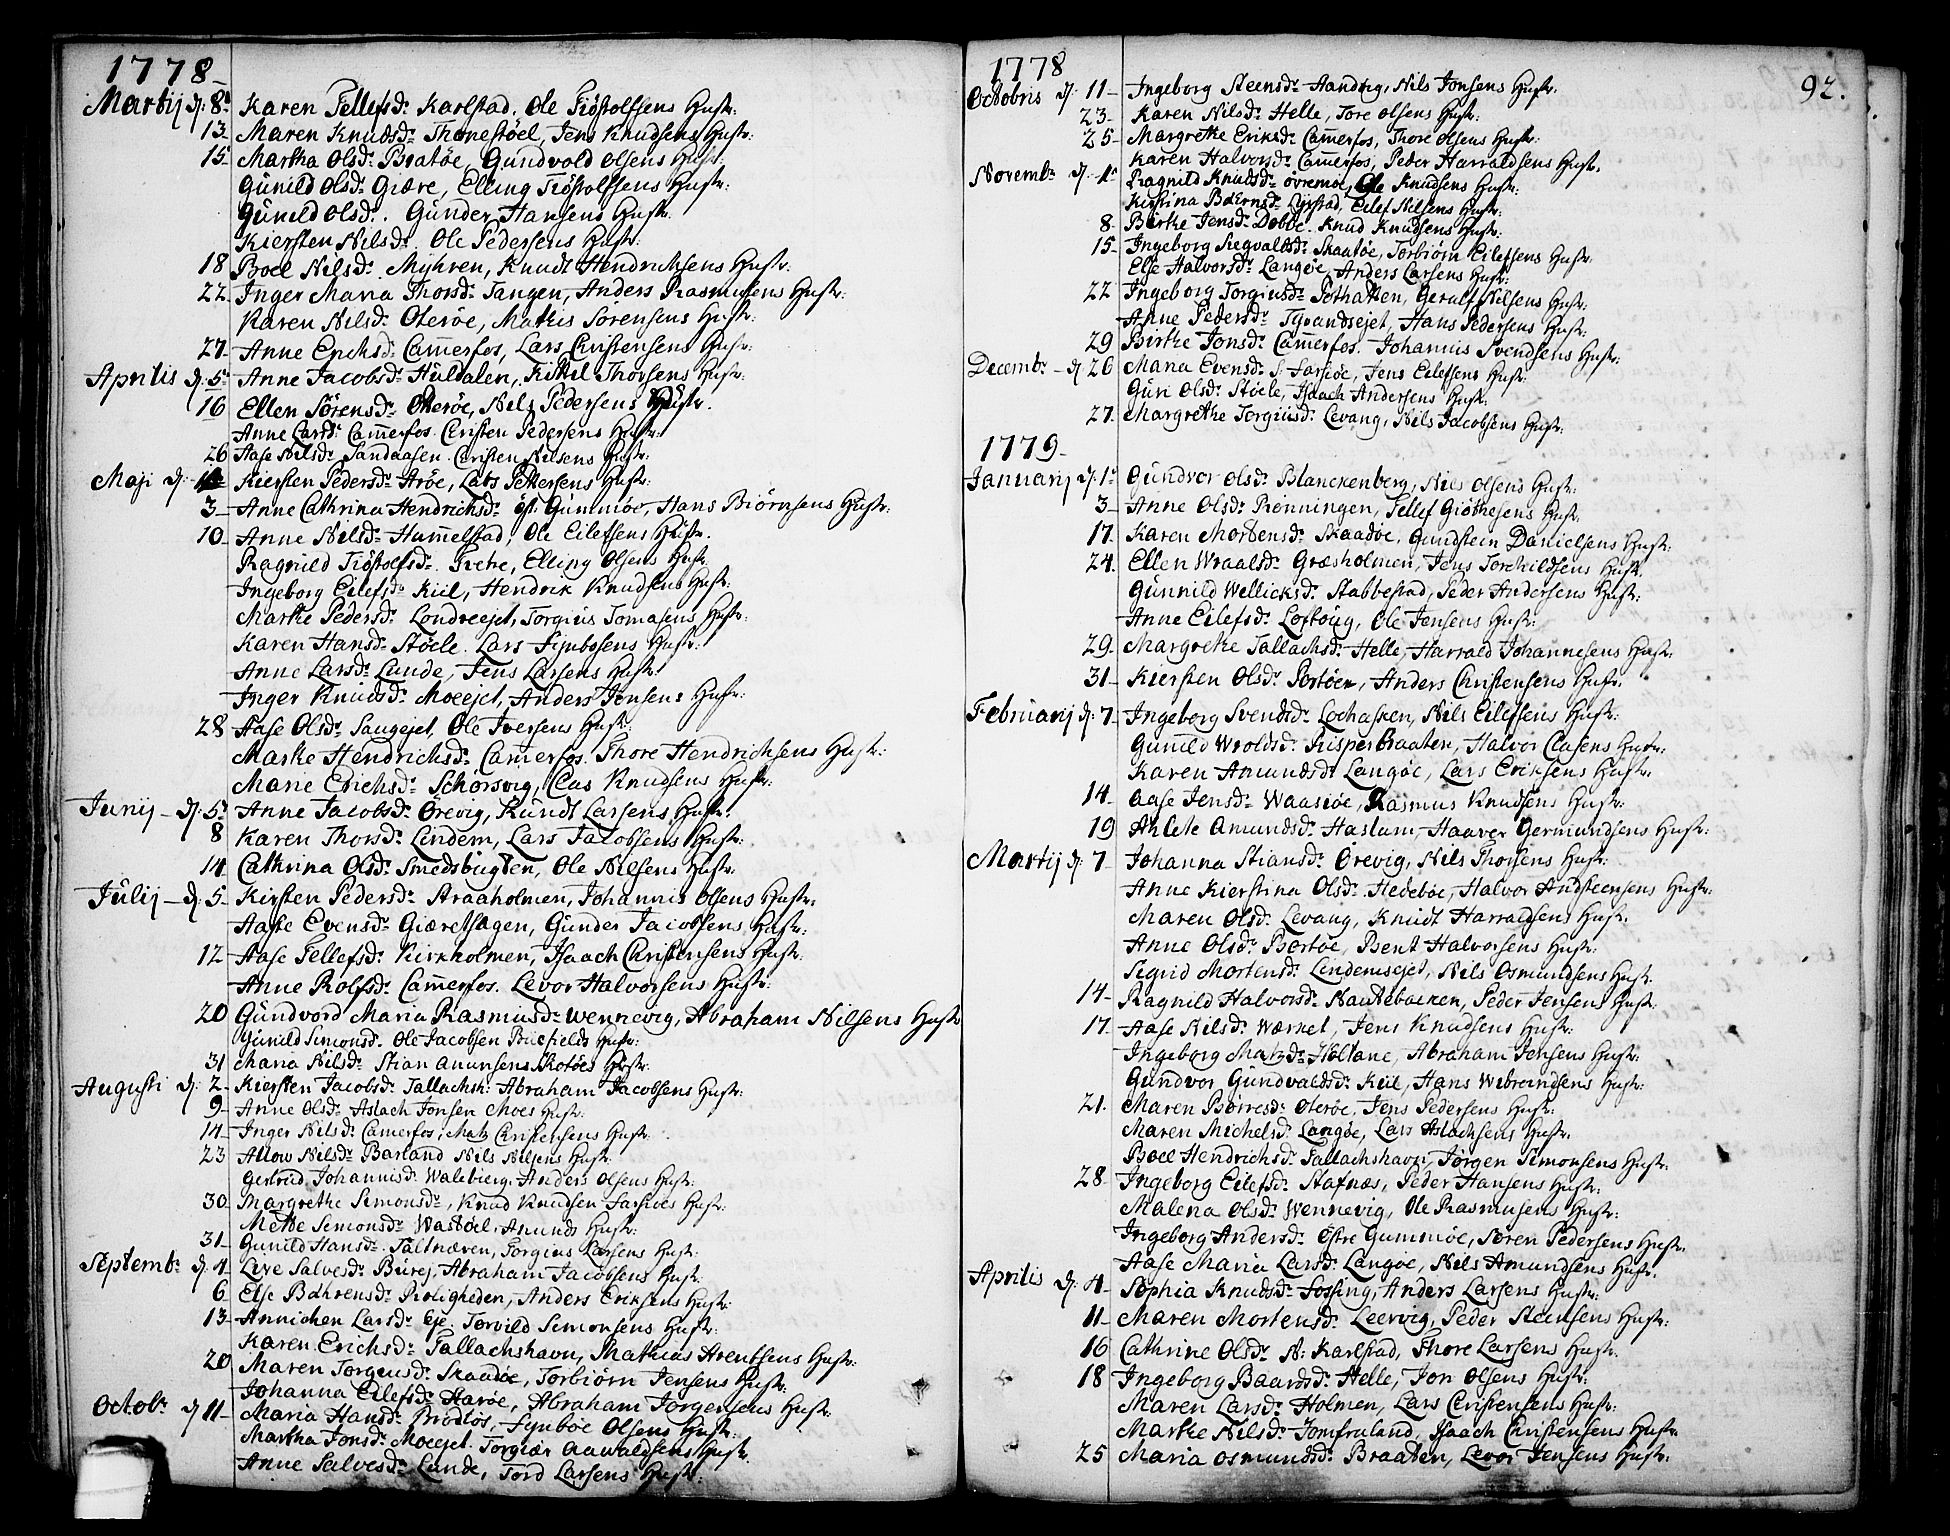 1778
Martij d: 8de Karen Tellefsdr Karlstad. Ole Tiøstolfsens Hustr:
13 Maren Knudsdr Thonestøel, Jens Knudsens Hustr:
15 Martha Olsdr Bratøe, Gundvold Olsens Hustr:
Gunild Olsdr Giære, Elling Tiøstolfsens Hustr:
Gunild Olsdr. Gunder Hansens Hustr.
Kiersten Nilsdr. Ole Pedersens Hustr:
18 Boel Nilsdr Myhren, Knudt Hendrichsens Hustr:
22 Inger Maria Thorsdr Tangen, Anders Rasmusens Hustr:
Karen Nilsdr Oterøe, Mathis Sørensens Hustr:
27 Anne Erichsdr Camerfos, Lars Christensens Hustr:
Aprilis d. 5te Anne Jacobsdr Huldalen, Kittil Thorsens Hustr:
16 Ellen Sørensdr Oterøe, Nils Pedersens Hustr.
Anne Larsdr Camerfos. Cristen Pedersens Hustr:
26 Aase Nilsdr Sandaasen. Cristen Nilsens Hustr:
Maji d: Kiersten Pedersdr Arøe, Lars Pettersens Hustr:
3 Anne Cathrina Hendrichsdr øst. Gummøe, Hans Biørnsens Hustr:
10 Anne Nilsdr Hummelstad, Ole Eilefsens Hustr.
Ragnild Tiøstolfsdr. Elling Olsens Hustr
Ingeborg Eilefsdr Kiil, Hendrik Knudsens Hustr:
Marthe Pedersdr Londreejet, Torgius Tomasens Hustr:
Karen Hansdr Støele. Lars Fynbosens Hustr:
Anne Larsdr Lunde, Jens Larsens Hustr:
Inger Knudsdr Moeejet, Anders Jensens Hustr:
28 Aase Olsdr Saugejet, Ole Iversens Hustr:
Marthe Hendrichsdr Camerfos. Thore Hendrichsens Hustr:
Marie Erichsdr Schørsvig, Clas Knudsens Hustr:
Junij d: 5te Anne Jacobsdr Ørevig, Knudt Larsens Hustr:
8 Karen Thorsdr Lindem, Lars Jacobsens Hustr:
14 Cathrina Olsdr Smedsbugten, Ole Nilsens Hustr:
Julij d. 5 Kirsten Pedersdr Straaholmen, Johannis Olsens Hustr.
Aaste Evensdr Giæretsagen, Gunder Jacobsens Hustr:
12 Aase Tellefsdr Kirkholmen, Isaach Christensens Hustr:
Anne Rolfsdr Camerfos. Levor Halvorsens Hustr:
20 Gundvord Maria Rasmusdr Wennevig, Abraham Nilsens Hustr
Gunild Simonsdr Ole Jacobsen Buefields Hustr:
31 Maria Nilsdr Stian Anunsens Skotøes Hustr:
Augusti d: 2 Kiersten Jacobsdr Tallachsh: Abraham Jacobsens Hustr:
9 Anne Olsdr Aslach Jonsen Moes Hustr:
14 Inger Nilsdr Camerfos, Matz Christensens Hustr
23 Allow Nilsdr Barland Nils Nilsens Hustr:
Gertrud Johannisdr Walebierg, Anders Olsens Hustr:
30 Margrethe Simonsdr, Knud Knudsen Farsiøes Hustr:
Mette Simonsdr Wastøel, Amunds Hustr:
31 Gunild Hansdr Saltnæven, Torgius Larsens Hustr:
Septembr d. 4 Live Salvesdr Burej, Abraham Jacobsens Hustr:
6 Else Bæhrensdr Roligheden, Anders Eriksens Hustr:
13 Annichen Larsdr Eje. Torvild Simonsens Hustr:
Karen Erichsdr Tallachshavn, Mathias Arentsens Hustr:
20 Maren Torgiusdr Skaadøe, Torbiørn Jensens Hustr:
Johanna Eilefsdr Harøe, Abraham Jørgensens Hustr:
Octobr d 11 Maria Hansdr Brødløs, Fynboe Olsens Hustr:
Martha Jonsdr Moeejet. Torgiær Aawaldsens Hustr.
Anne Salvesdr Lunde, Tord Larsens Hustr:
92.
1778
Octobris d. 11 Ingeborg Steensdr Nils Jonsens Hustr:
23 Karen Nilsdr Helle, Tore Olsens Hustr:
25 Margrethe Eriksdr Camerfos, Thore Olsens Hustr:
Karen Halvorsdr Camerfos, Peder Harraldsens Hustr.
Novembr d. 1te Ragnild Knudsdr Øvremøe, Ole Knudsens Hustr:
Kirstina Bærnsdr Eilef Nilsens Hustr:
8 Birthe Jensdr Dobbe. Knud Knudsens Hustr:
15 Ingeborg Siegvaldsdr Skaatøe, Torbiørn Eilefsens Hustr.
Else Halvorsdr Langøe, Anders Larsens Hustr:
22 Ingeborg Torgiusdr Pothatten, Geralf Nilsens Hustr:
Anne Pedersdr Tyvandsejet, Hans Pedersens Hustr:
29 Birthe Jonsdr Camerfos. Johannis Svendsens Hustr:
Decembr d 26 Maria Evensdr S. Farsiøe, Jens Eilefsens Hustr:
Guri Olsdr Støele, Isaach Andersens Hustr:
27. Margrethe Torgiusdr Levang, Nils Jacobsens Hustr:
1779
Januarij d: 1te Gundvor Olsdr Blanckenberg, Nils Olsens Hustr:
3 Anne Olsdr Rønningen, Tellef Giøthesens Hustr:
17. Karen Mortensdr Skaadøe, Gundstein Danielsens Hustr:
24. Ellen Wraalsdr Græsholmen, Jens Torkildsens Hustr.
Gunnild Wellicksdr Stabbestad, Peder Andersens Hustr:
Anne Eilefsdr Loftoug, Ole Jensens Hustr:
29. Margrethe Tallachsdr Helle, Harrald Johannesens Hustr:
31 Kiersten Olsdr Portøer, Anders Christensens Hustr.
Februarij d: 7 Ingeborg Svendsdr Lochassen, Nils Eilefsens Hustr:
Gunild Wroldsdr Risperbraaten, Halvor Clasens Hustr:
Karen Amundsdr Langøe, Lars Eriksens Hustr:
14. Aase Jensdr Waasiøe, Rasmus Knudsens Hustr:
19 Ahlete Amundsdr Haslum, Haaver Germundsens Hustr:
Martij d. 7 Johanna Stiansdr Ørevig, Nils Thorsens Hustr:
Anne Kierstina Olsdr Hedebøe, Halvor Andsteensens Hustr:
Maren Olsdr Levang, Knudt Harraldsens Hustr:
Anne Olsdr Bortøe, Bent Halvorsens Hustr:
Sigrid Mortensdr Lindemsejet, Nils Osmundsens Hustr
14 Ragnild Halvorsdr Nautebacken, Peder Jensens Hustr:
17. Aase Nilsdr Wærket, Jens Knudsens Hustr:
Ingeborg Matzdr Holtane, Abraham Jensens Hustr:
Gundvor Gundvaldsdr Kiil, Hans Webrandsens Hustr:
21. Maren Børresdr Oterøe, Jens Pedersens Hustr:
Maren Michelsdr Langøe, Lars Aslachsens Hustr.
Boel Hendrichsdr Tallachshavn, Jørgen Simonsens Hustr:
28 Ingeborg Eilefsdr Stafnæs, Peder Hansens Hustr:
Malena Olsdr Wennevig, Ole Rasmusens Hustr:
Ingeborg Andersdr Østre Gummøe, Søren Pedersens Hustr.
Aase Maria Larsdr Langøe, Nils Amundsens Hustr.
Aprilis d. 4 Sophia Knudsdr Fossing, Anders Larsens Hustr:
11 Maren Mortensdr Leervig, Peder Steensens Hustr:
16 Cathrine Olsdr N: Karlstad, Thore Larsens Hustr:
18 Ingeborg Baardsdr Helle, Jon Olsens Hustr:
Maren Larsdr Holmen, Lars Christensens Hustr:
Marthe Nilsdr Jomfruland, Isaach Christensens Hustr.
25 Maria Osmundsdr Braaten, Levor Jensens Hustr: